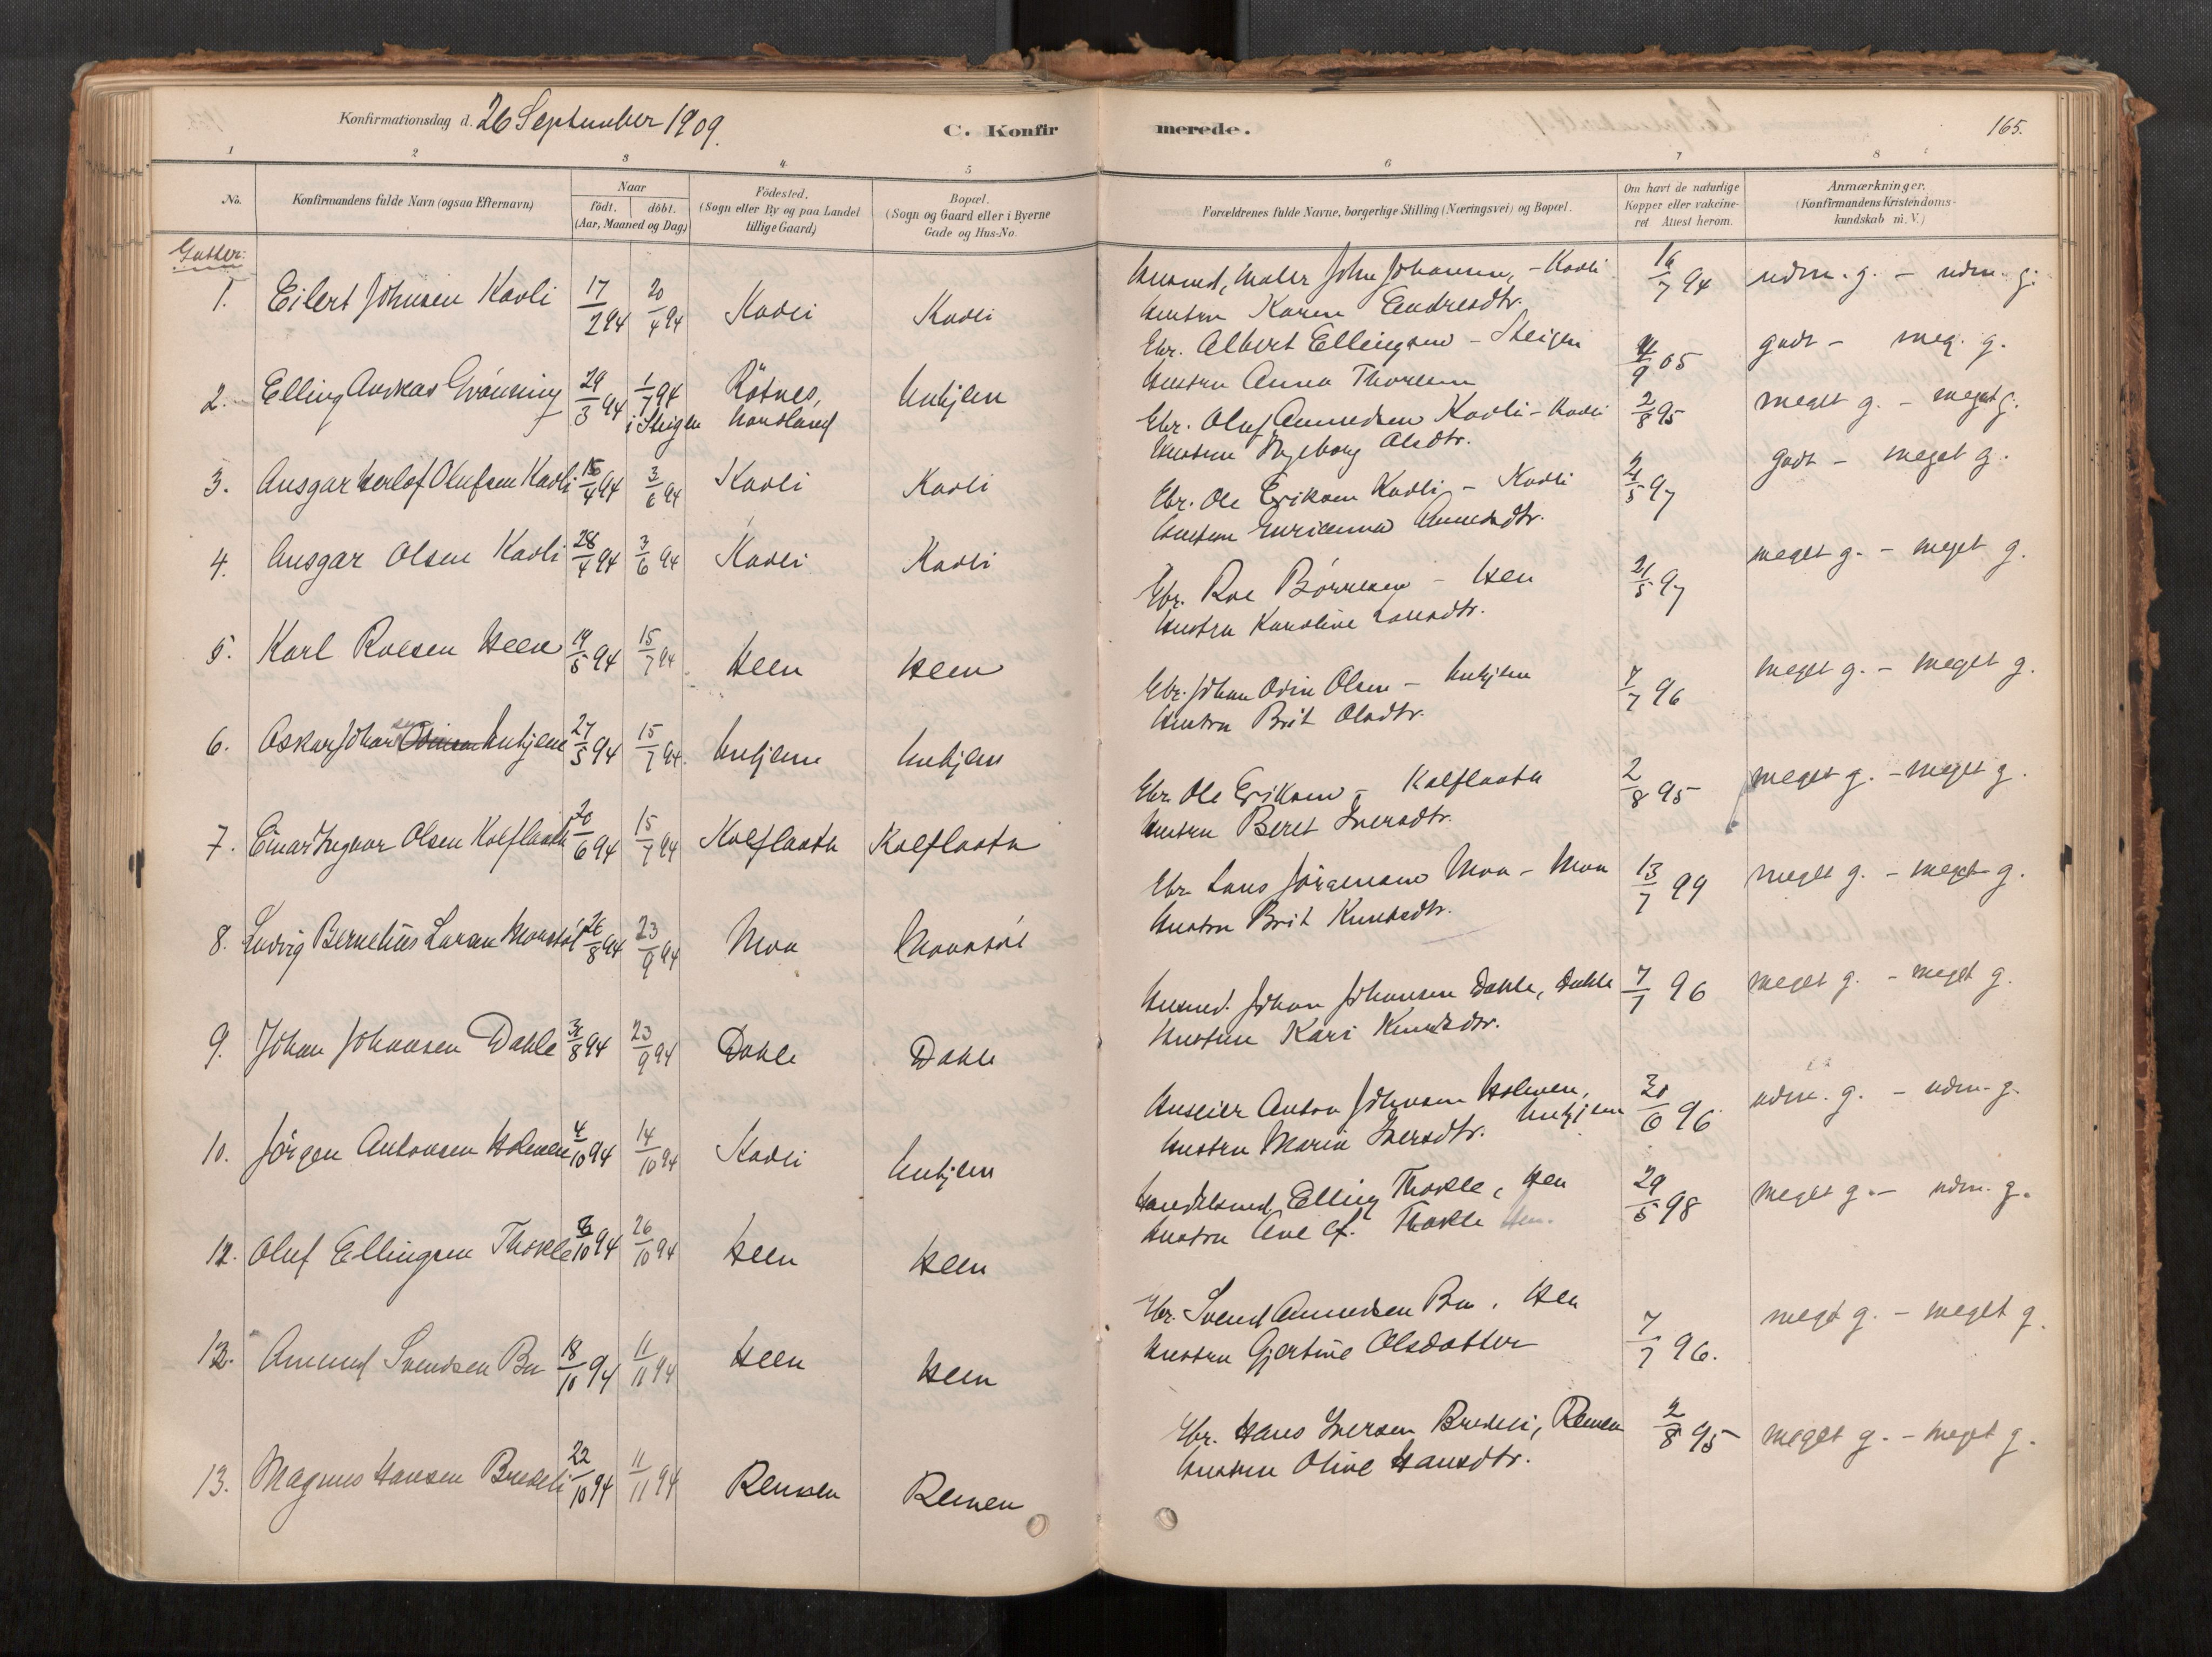 Konfirmationsdag d. 26 September 1909.
C. Konfirmerede.
165.
1 2 3 4 5 6 7 8
No.
Konfirmandens fulde Navn (ogsaa Efternavn)
Naar
födt. döbt.
(Aar, Maaned og Dag)
Födested.
(Sogn eller By og paa Landet
tillige Gaard)
Bopæl.
(Sogn og Gaard eller i Byerne
Gade og Hus-No.
Forældrenes fulde Navne, borgerlige Stilling (Næringsvei) og Bopæl.
Om havt de naturlige
Kopper eller vakcine-
ret Attest herom.
Anmærkninger.
(Konfirmandens Kristendoms-
kundskab m. V.)
Gutter:
1. Eilert Johnsen Kavli 17/2 94 20/4 94 Kavli Kavli
Husmd, Maler John Johansen, - Kavli
Hustru Karen Endresdtr.
16/7 94 udm. g. - udm. g.
2. Elling Andreas Grönning 29/3 94 1/7 94 Rötnes, i Steigen Nordland Unhjem
Gbr. Albert Ellingsen - Steigen
Hustru Anna Thoresen
9 05 godt - meg. g.
3. Ansgar Herlof Olufsen Kavli 15/4 94 3/6 94 Kavli Kavli
Gbr. Oluf Amundsen Kavli - Kavli
Hustru Ingeborg Olsdtr.
2/8 95 meget g. - meget g.
4. Ansgar Olsen Kavli 28/4 94 3/6 94 Kavli Kavli
Gbr. Ole Eriksen Kavli - Kavli
Hustru Amundsdtr.
21/5 97 godt - meget g.
5. Karl Roesen Heen 19/5 94 15/7 94 Heen Heen
Gbr. Roe Börresen - Hen
Hustru Karoline Larsdtr.
21/5 97 meget g. - meget g.
6. Oskar Johansen Unhjem 27/5 94 15/7 94 Unhjem Unhjem
Gbr. Johan Odin Olsen - Unhjem
Hustru Brit Olsdtr.
7/7 96 meget g. - meget g.
7. Einar Ingvar Olsen Kolflaath 20/6 94 15/7 94 Kolflaath Kolflaath
Gbr. Ole Eriksen - Kolflaath
Hustru Beret Iversdtr.
2/8 95 meget g. - meget g.
8. Ludvig Bernelius Larsen Moasöl 26/8 94 23/9 94 Moa Moasöl
Gbr. Lars Jörgensen Moa - Moa
Hustru Brit Knutsdtr.
13/7 99 meget g. - meget g.
9. Johan Johansen Dahle 31/8 94 23/9 94 Dahle Dahle
Husmd. Johan Johansen Dahle, Dahle
Hustru Kari Knutsdtr.
7/7 96 meget g. - meget g.
10. Jörgen Antonsen Holmen 4/10 94 14/10 94 Kavli Unhjem
Huseier Anton Johnsen Holmen,
Hustru Marie Iversdtr. Unhjem
6 96 udm. g. - udm. g.
Oluf Ellingsen Thokle 10 94 26/10 94 Heen Heen
Handelsmd. Elling Thokle, Hen
Hustru Ane Thokle Hen.
29/5 98 meget g. - udm. g.
12. Amund Svendsen Bu 18/10 94 11/11 94 Heen Heen
Gbr. Svend Amundsen Bu, Hen
Hustru Gjertine Olsdatter
7/7 96. meget g. - meget g.
13. Magnus Hansen Bredeli 22/10 94 11/11 94 Remmen Remmen
Gbr. Hans Iversen Bredeli, Remmen
Hustru Oline Hansdtr.
2/8 95 meget g. - meget g.